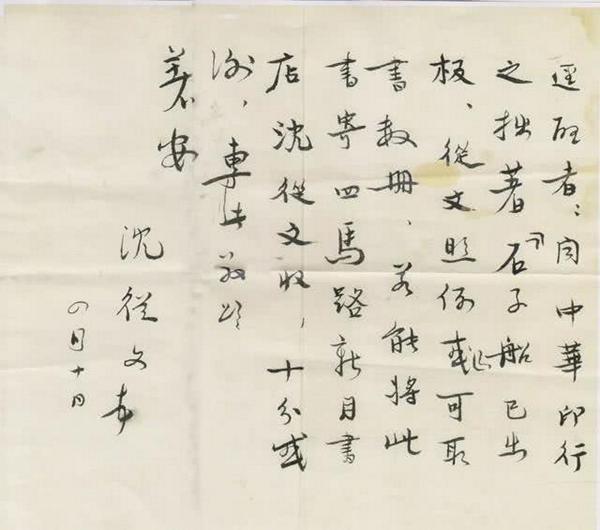 逕啟者:中華印行
之拙著『石子船』已出
板、從文照例或可取
書数冊、若能將此
書寄四馬路新月書
店沈從文收,十分感
谢,專此敬頌
著安
沈從文
の月十日